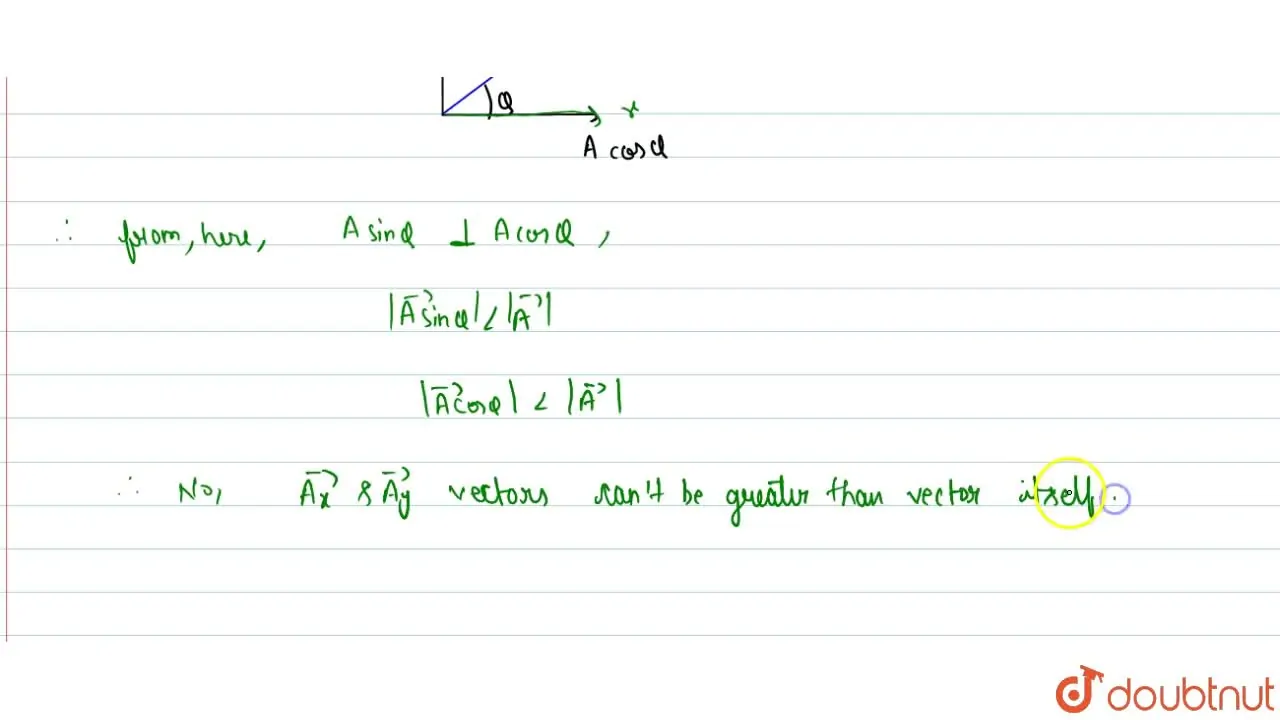 θ x
A cosθ
∴ from, here, A sinθ ⊥ A cosθ,
|A⃗ sinθ| < |A⃗|
|A⃗ cosθ| < |A⃗|
∴ No, A⃗x & A⃗y vectors can't be greater than vector itself.
doubtnut